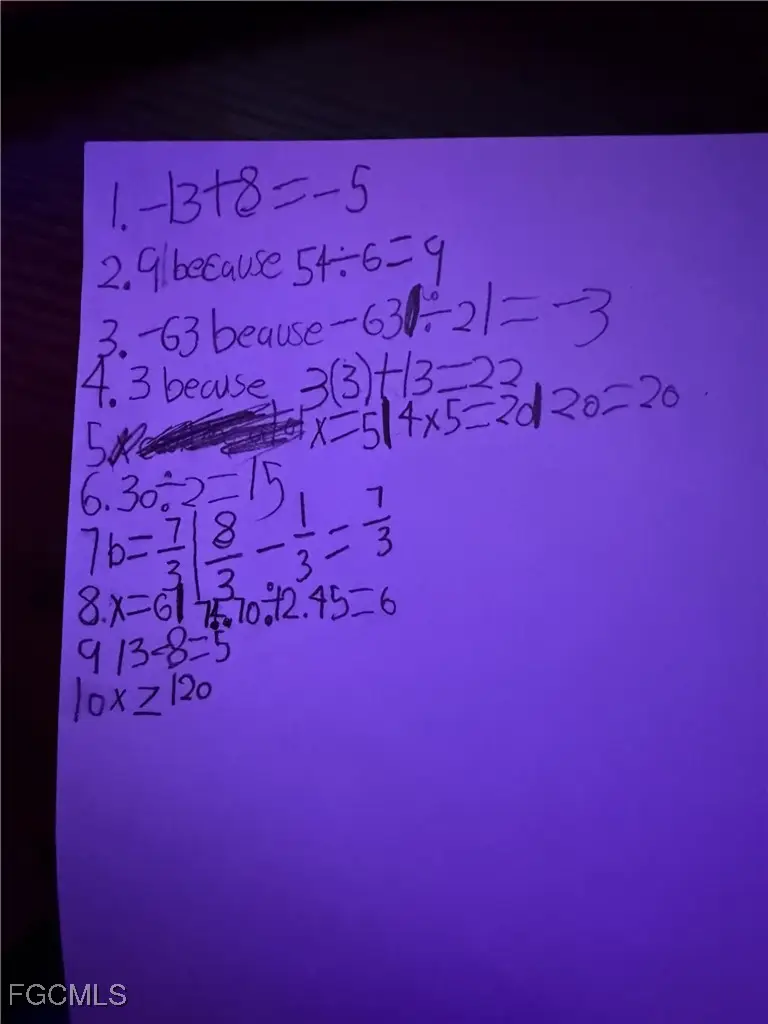 1. -13+8=-5
2. 9|because 54÷6=9
3. -63 beause -63|÷21=-3
4. 3 becuse 3(3)+13=22
5 x=5|4x5=20|20=20
6. 30÷2=15
7 b=7/3|8/3-1/3=7/3
8. x=6|74.70÷12.45=6
9 13-8=5
10 x≥120
FGCMLS